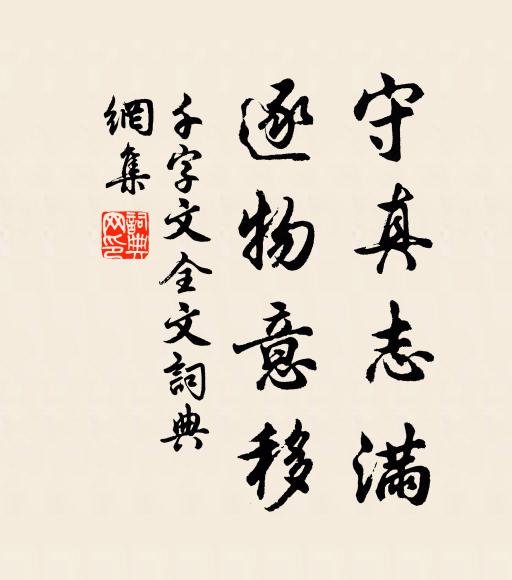 守真志滿
逐物意移
千字文全文詞典
網集
詞典
网印